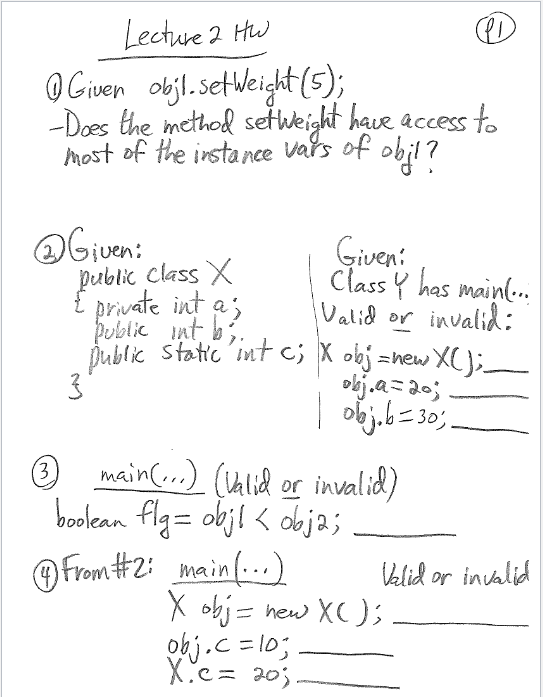 Lecture 2 HW
P1
① Given obj1.setWeight(5);
-Does the method setWeight have access to
most of the instance vars of obj1?
② Given:
public class X
{ private int a;
public int b;
public static int c;
}
Given:
Class Y has main(...
Valid or invalid:
X obj = new X();____
obj.a = 20; ______
obj.b = 30; ______
③ main(...) (Valid or invalid)
boolean flg = obj1 < obj2; ________
④ From #2: main(...) Valid or invalid
X obj = new X(); __________
obj.c = 10; _______
X.c = 20; _______